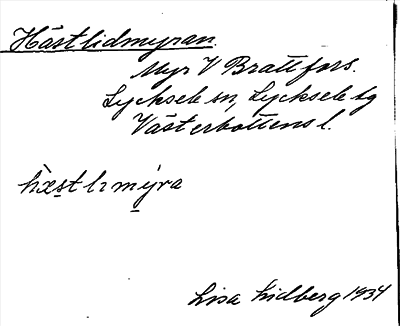 Hästlidmyran.
Myr V Brattfors.
Lycksele sn, Lycksele lg
Västerbottens l.
hæ̀st lı my̔ra
Lisa Lidberg 1934